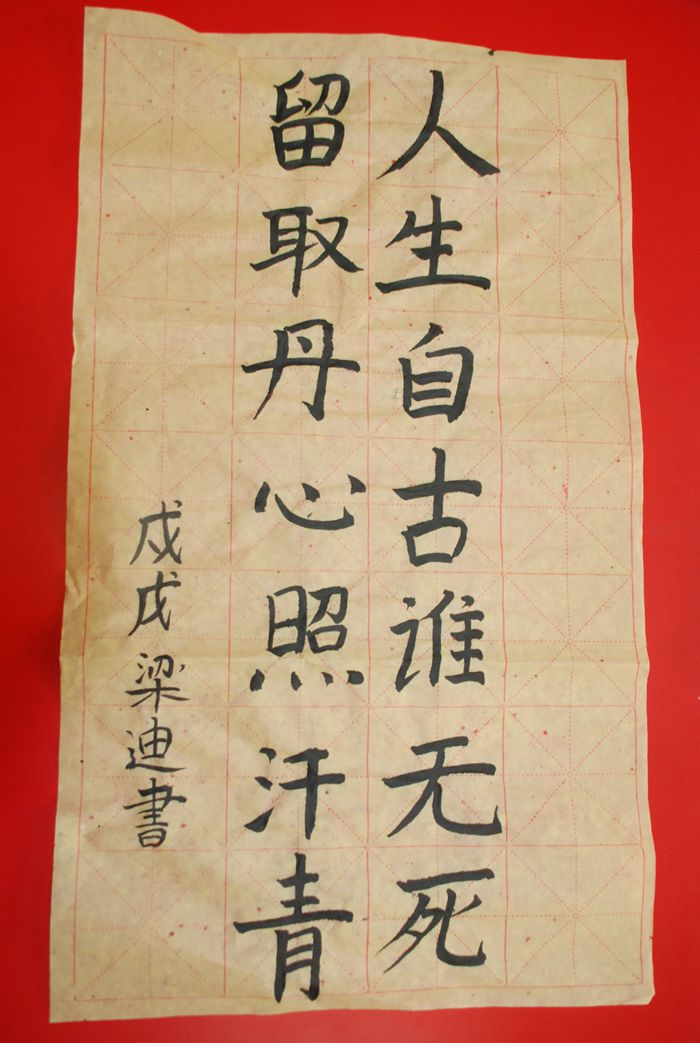 人生自古谁无死
留取丹心照汗青
戊戌梁迪書